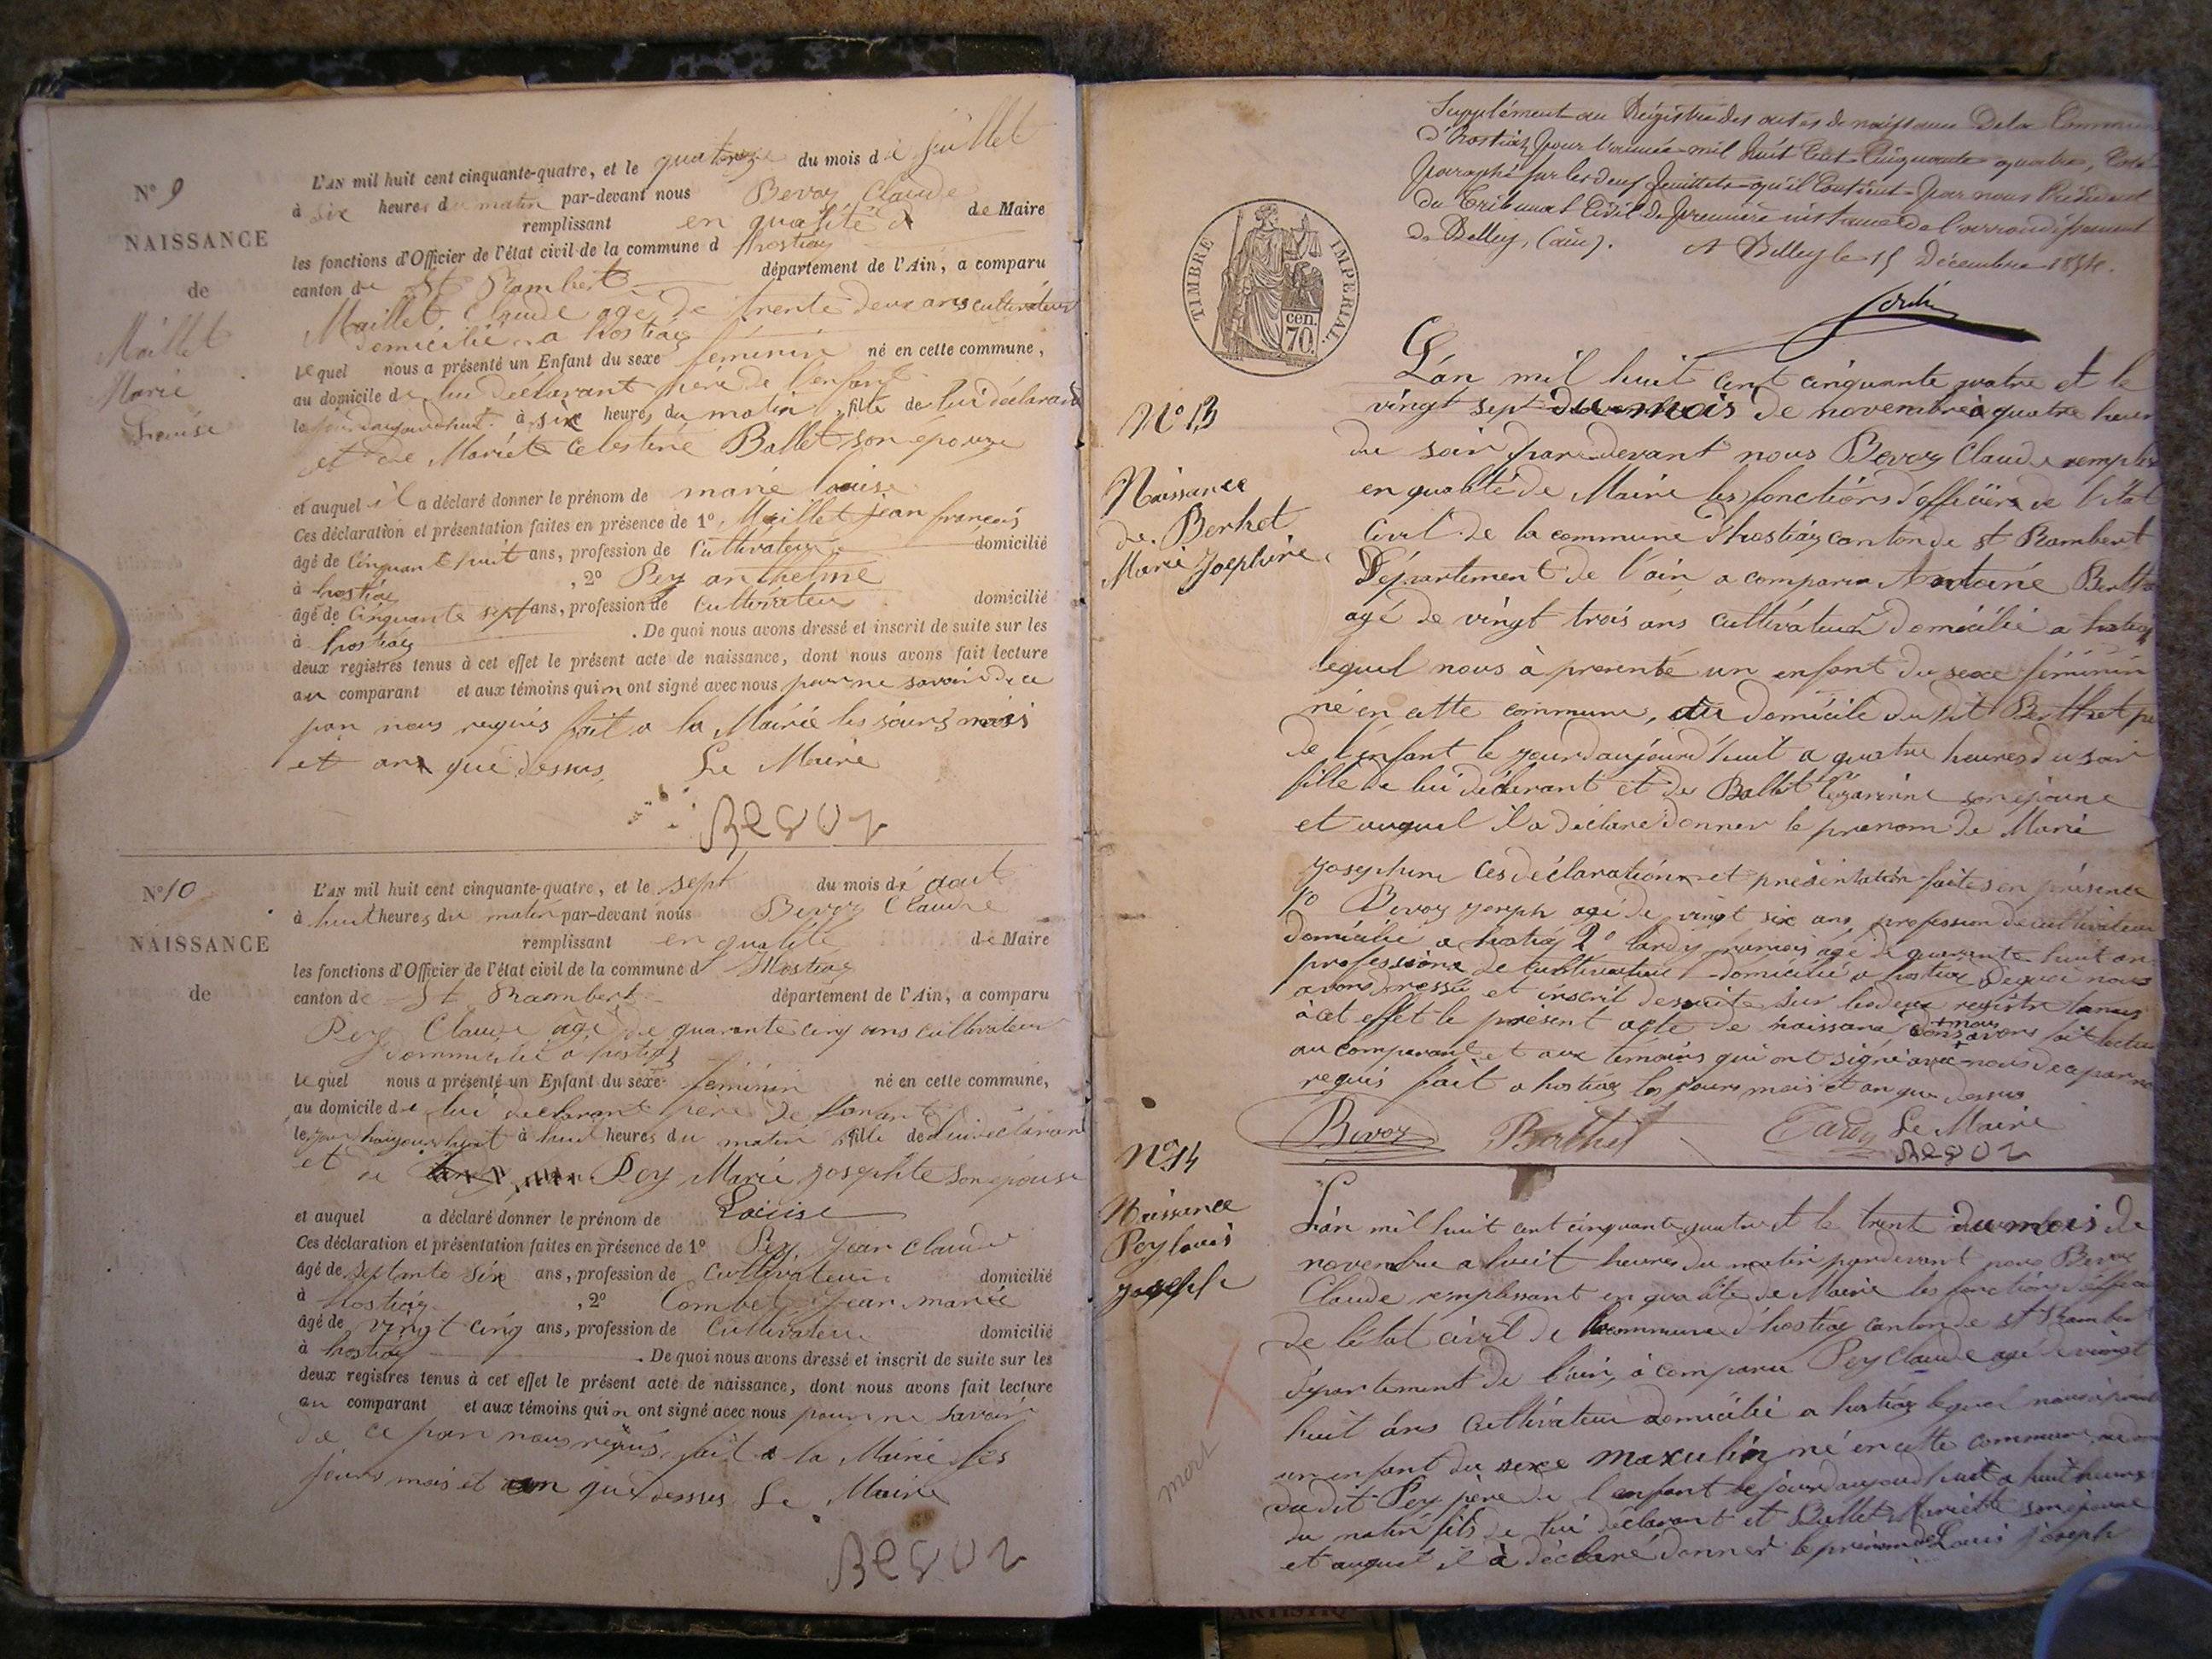 N° 9
NAISSANCE
de
Maillet
Marie
Louise
L'AN mil huit cent cinquante-quatre, et le quatorze du mois de juillet
à six heures du matin par-devant nous Bevoz Claude
remplissant en qualité de Maire
les fonctions d'Officier de l'état civil de la commune d hostiaz
canton de St Rambert département de l'Ain, a comparu
Maillet Claude agé de trente deux ans cultivateur
domicilié a hostiaz
lequel nous a présenté un Enfant du sexe féminin né en cette commune,
au domicile de lui déclarant père de l'enfant
le jourdaujourdhuit à six heures du matin, fille de lui déclarant
et de Mariete Celestine Ballet son épouze
et auquel il a déclaré donner le prénom de marie louise
Ces déclaration et présentation faites en présence de 1° Maillet jean francois
âgé de Cinquante huit ans, profession de Cultivateur domicilié
à hostiaz, 2° Pey anthelme
âgé de Cinquante sept ans, profession de Cultivateur domicilié
à hostiaz. De quoi nous avons dressé et inscrit de suite sur les
deux registres tenus à cet effet le présent acte de naissance, dont nous avons fait lecture
au comparant et aux témoins qui n ont signé avec nous pour ne savoir de ce
par nous requis fait a la Mairie les jours mois
et an que dessus. Le Maire
Bevoz
N° 10
NAISSANCE
de
L'AN mil huit cent cinquante-quatre, et le sept du mois de aout
à huit heures du matin par-devant nous Bevoz Claude
remplissant en qualité de Maire
les fonctions d'Officier de l'état civil de la commune d Hostiaz
canton de St Rambert département de l'Ain, a comparu
Pey Claude âgé de quarante cinq ans cultivateur
dommicilié a hostiaz
lequel nous a présenté un Enfant du sexe féminin né en cette commune,
au domicile de lui declarant père de l'enfant
le à huit heures du matin fille de lui déclarant
et de Pey Marie josephte son épouse
et auquel a déclaré donner le prénom de Louise
Ces déclaration et présentation faites en présence de 1° Pey Jean Claude
âgé de septante six ans, profession de Cultivateur domicilié
à hostiaz, 2° Combet Jean marie
âgé de vingt cinq ans, profession de Cultivateur domicilié
à hostiaz. De quoi nous avons dressé et inscrit de suite sur les
deux registres tenus à cet effet le présent acte de naissance, dont nous avons fait lecture
au comparant et aux témoins qui n ont signé avec nous pour ne savoir
de ce par nous requis, fait a la Mairie les
jours mois et an que dessus Le Maire
Bevoz
Supplément au Régistre des actes de naissance De la Commune
d'hostiaz pour l'année mil huit Cent Cinquante quatre, Coté
paraphé sur les deux feuillets qu'il Contient par nous Président
du Tribunal Civil de première instance de l'arrondissement
de Belley, (ain). A Belley le 15 Décembre 1854.
TIMBRE IMPERIAL.
cen.
70.
N° 13
Naissance
de Berhet
Marie Josephine
L'án mil huit cent cinquante quatre et le
vingt sept du mois de novembre à quatre heur
du soir par-devant nous Bevoz Claude remplis
en qualité de Maire les fonctions d'officier de l'état
Civil de la commune d'hostiaz canton de st Rambert
Département de l'ain a comparu Antoine Berthe
agé de vingt trois ans cultivateur domicilié a hostiaz
lequel nous à presenté un enfant du sexe féminin
né en cette commune, au domicile du dit Berthet pe
de l'enfant le jourdaujourd'huit a quatre heures du soir
fille de lui déclarant et de Ballet son épouse
et auquel il a déclaré donner le prenom de Marie
Josephine Ces déclaration et présentation faites en présence
1° Bevoz joseph agé de vingt six ans, profession de cultivateur
domicilié a hostiaz 2° tardy francois agé de quarante huit an
profession de cultivateur domicilié a hostiaz Dequoi nous
avons dressé et inscrit desuite sur les deux registre tenus
à cet effet le présent acte de naissance dont nous avons fait lectur
au comparant et aux témoins qui ont signé avec nous de ce par no
requis fait a hostiaz les jours mois et an que dessus
Bevoz Berthet Tardy Le Maire
Bevoz
N° 14
Naissance
Pey louis
joseph
mort
L'án mil huit cent cinquante quatre et le trent du mois de
novembre a huit heures du matin pardevant nous Bevoz
Claude remplissant en qualité de Maire les fonctions d'officier
de l'état civil de la commune d'hostiaz canton de st Rambert
département de l'ain, à comparu Pey Claude agé de vingt
huit áns Cultivateur domicilié a hostiaz lequel nous à présent
un enfant du sexe masculin né en cette commune, au
du dit Pey père de l'enfant le jourdaujourdhuit a huit heures
du matin fils de lui déclarant et Ballet Mariette son épouse
et auquel il à déclaré donner le prénom de Louis joseph
ARTISTIQ